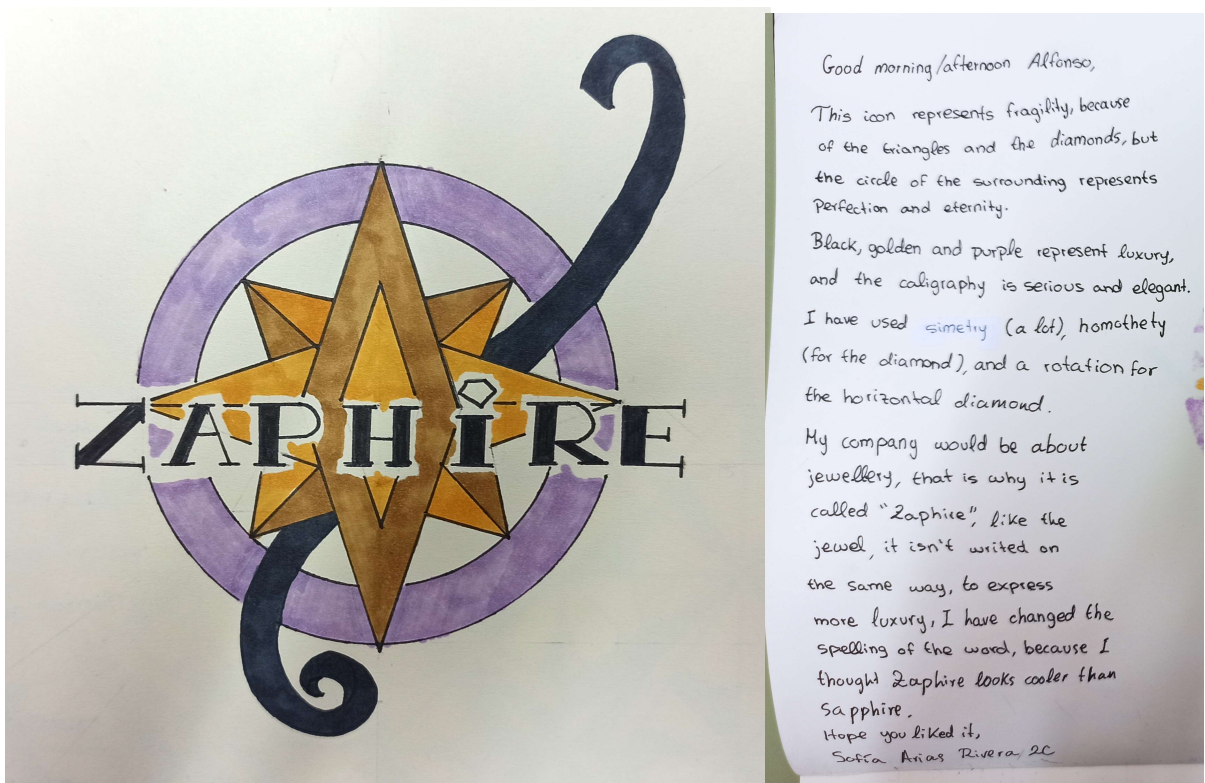 ZAPHiRE
Good morning/afternoon Alfonso,
This icon represents fragility, because
of the triangles and the diamonds, but
the circle of the surrounding represents
Perfection and eternity.
Black, golden and purple represent luxury,
and the caligraphy is serious and elegant.
I have used simetry (a lot), homothety
(for the diamond), and a rotation for
the horizontal diamond.
My company would be about
jewellery, that is why it is
called "Zaphire", like the
jewel, it isn't writed on
the same way, to express
more luxury, I have changed the
spelling of the word, because I
thought Zaphire looks cooler than
sapphire.
Hope you liked it,
Sofía Arias Rivera 2C